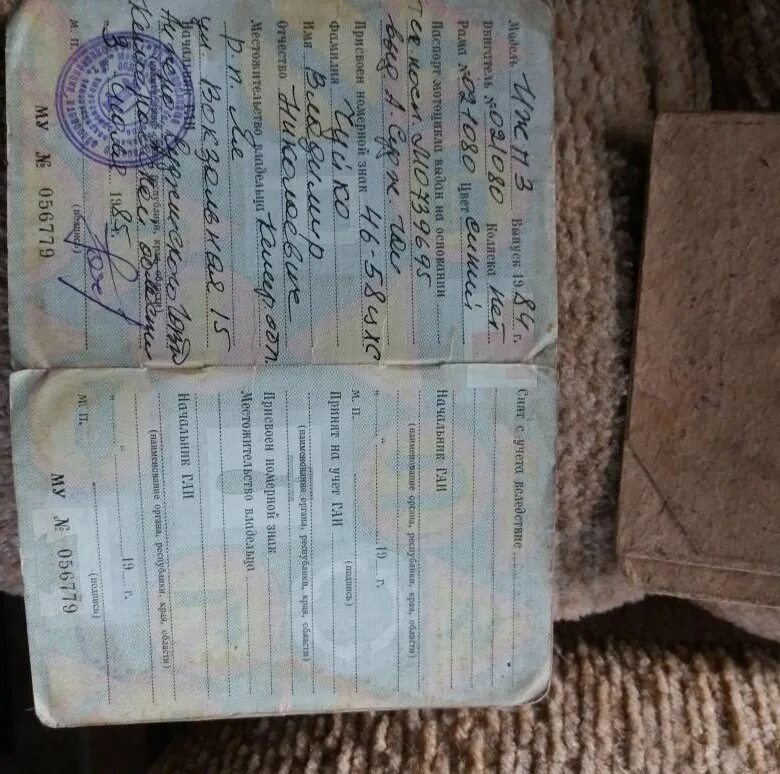 Модель Иж п 3 Выпуск 1984 г.
Двигатель № 021080 Коляска нет
Рама № 021080 Цвет синий
Паспорт мотоцикла выдан на основании
МЮ739695
выд А. Судж. ГАИ
Присвоен номерной знак 46-58
Фамилия Чуйко
Имя Владимир
Отчество Николаевич
Местожительство владельца Кемер обл.
р.п. Яя
ул. Вокзальная 15
Начальник ГАИ
1985
м. п. (подпись)
МУ № 056779
Снят с учета вследствие
Начальник ГАИ
(наименование органа, республики, края, области)
м. п. „ “ 19 г.
(подпись)
Принят на учет ГАИ
(наименование органа, республики, края, области)
Присвоен номерной знак
Местожительство владельца
Начальник ГАИ
(наименование органа, республики, края, области)
„ “ 19 г.
м. п. (подпись)
МУ № 056779